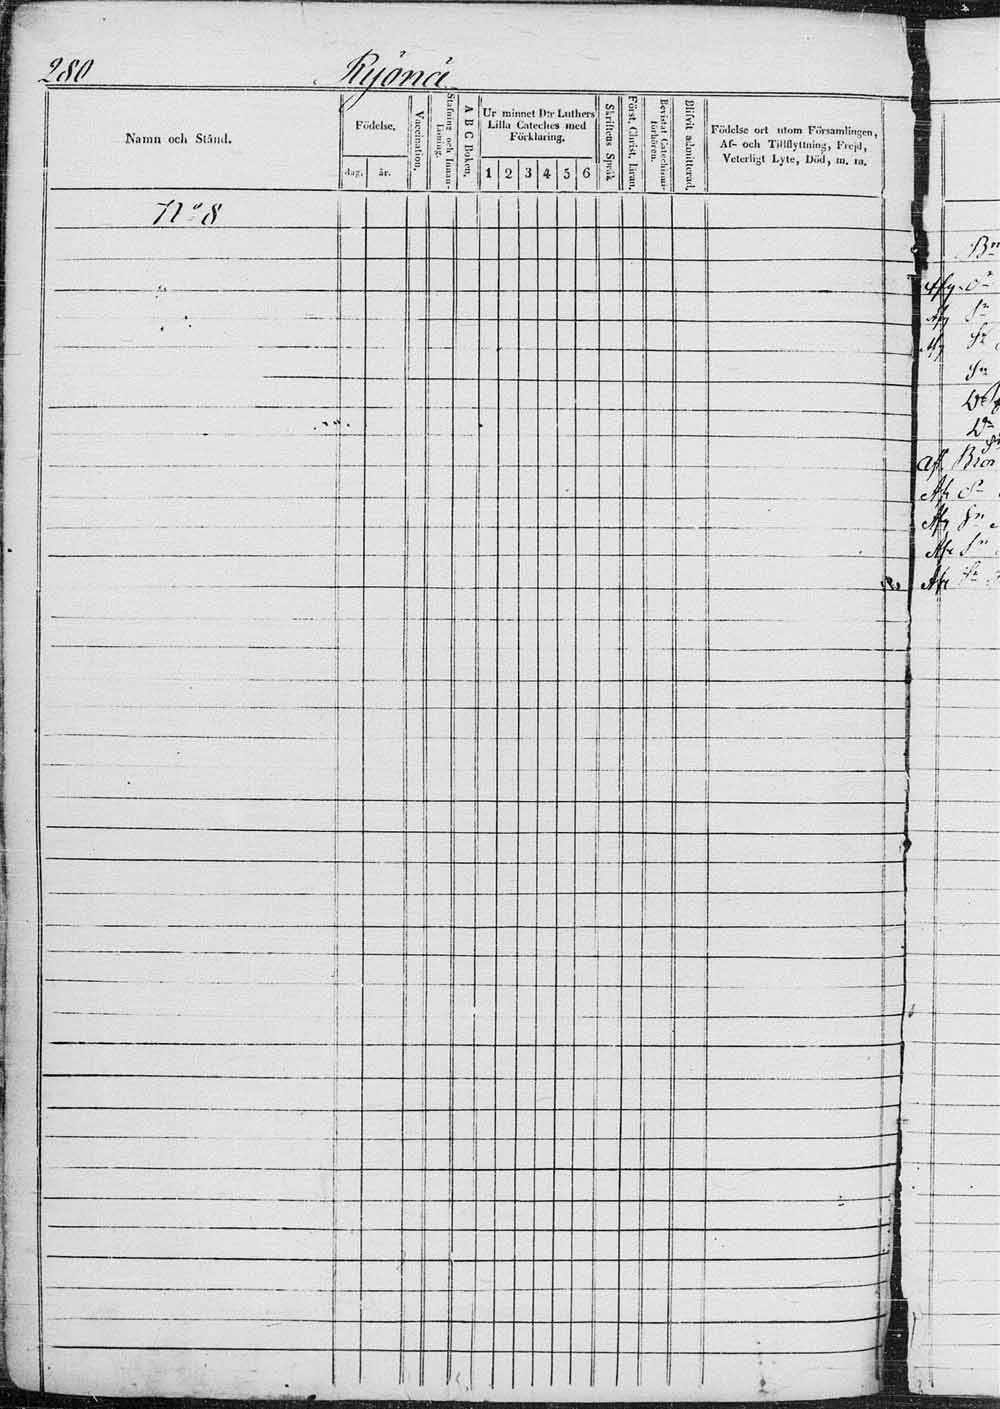 280 Ryönä
Namn och Stånd.
Födelse.
dag.
år.
Vaccination.
Stafning och Innan-
läsning.
A B C Boken.
Ur minnet D:r Luthers
Lilla Cateches med
Förklaring.
1 2 3 4 5 6
Skriftens Språk
Först. Christ. läran.
Bevistat Catechismi-
förhören.
Blifvit admitterad.
Födelse ort utom Församlingen,
Af- och Tillflyttning, Frejd,
Veterligt Lyte, Död, m. m.
No 8